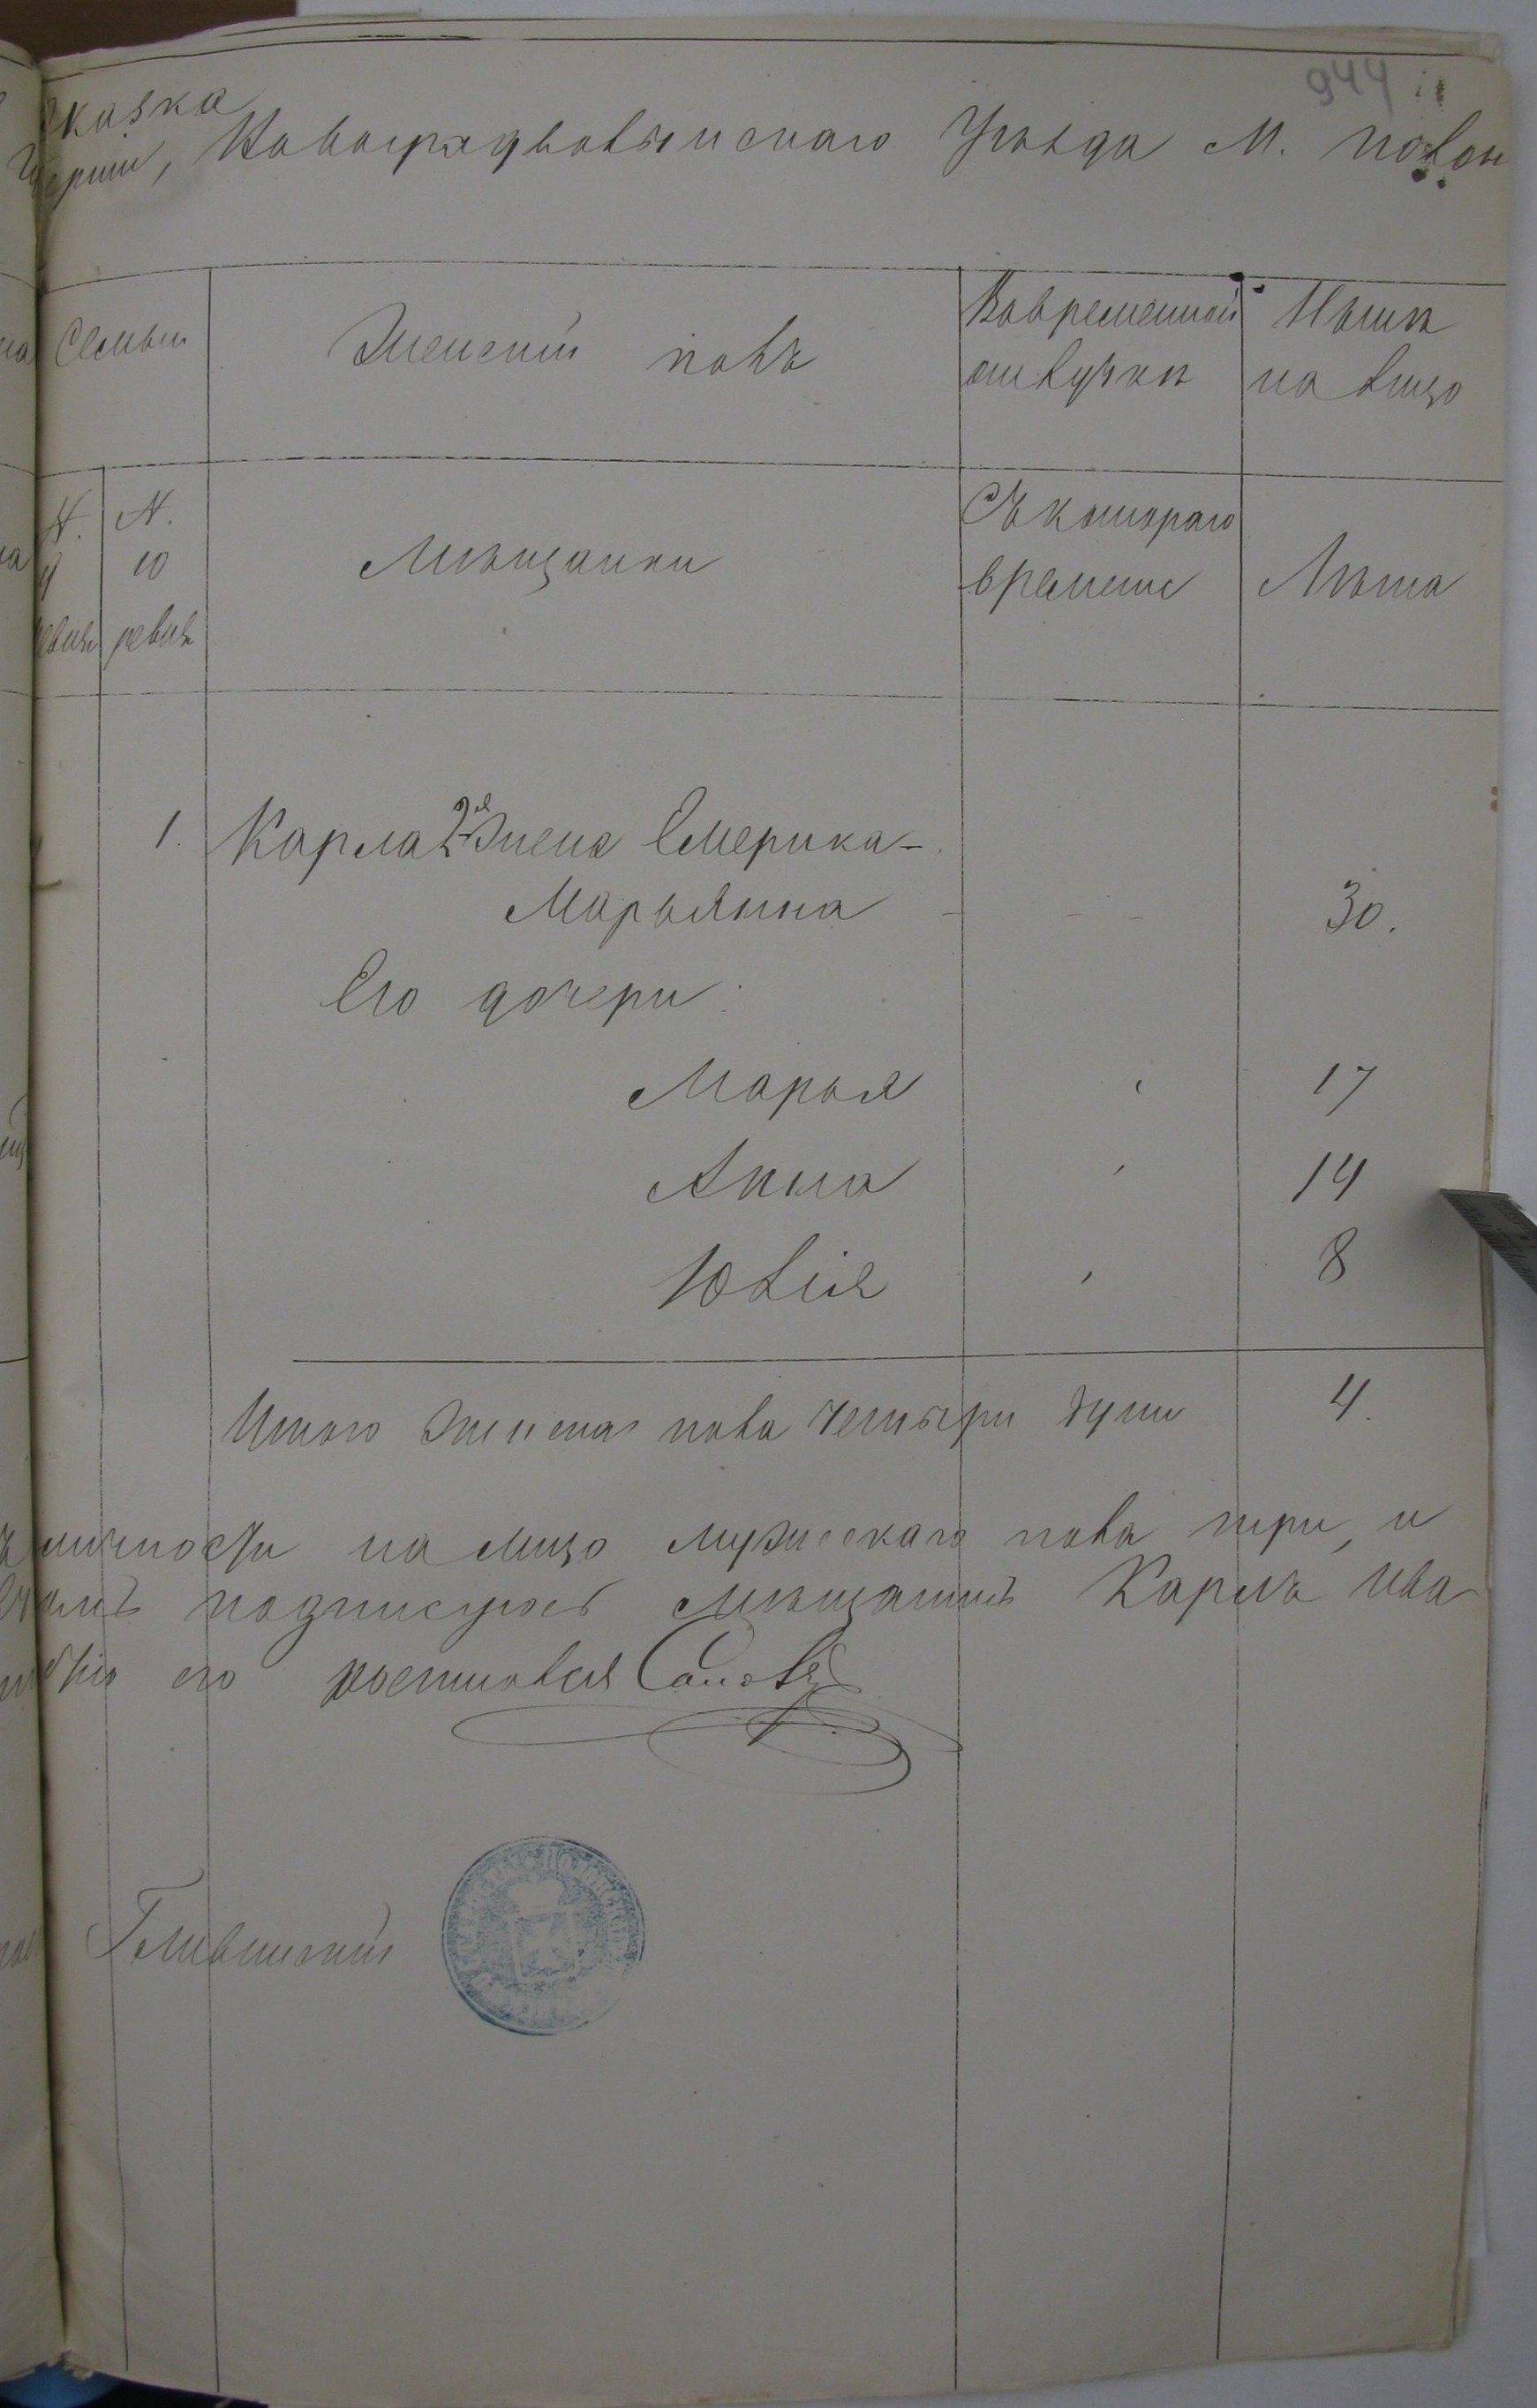 944
сказка
Губерніи, Новоградволынскаго Уѣзда М. Полон
Семьи
Женскій полъ
Вовременной
отлучкѣ
Нынѣ
на лицо
N. N.
9 10
ревиз. ревиз.
Мѣщанки
Съ котораго
времени
Лѣта
1. Карла 2я Жена Емерика-
Марьянна - - - 30.
Его дочери:
Марья 17
Анна 14
Юлія 8
Итого женскаго пола четыри души 4.
личности на лицо мужескаго пола три, и
подписуюсь мѣщанинъ Карлъ Ива
его росписался